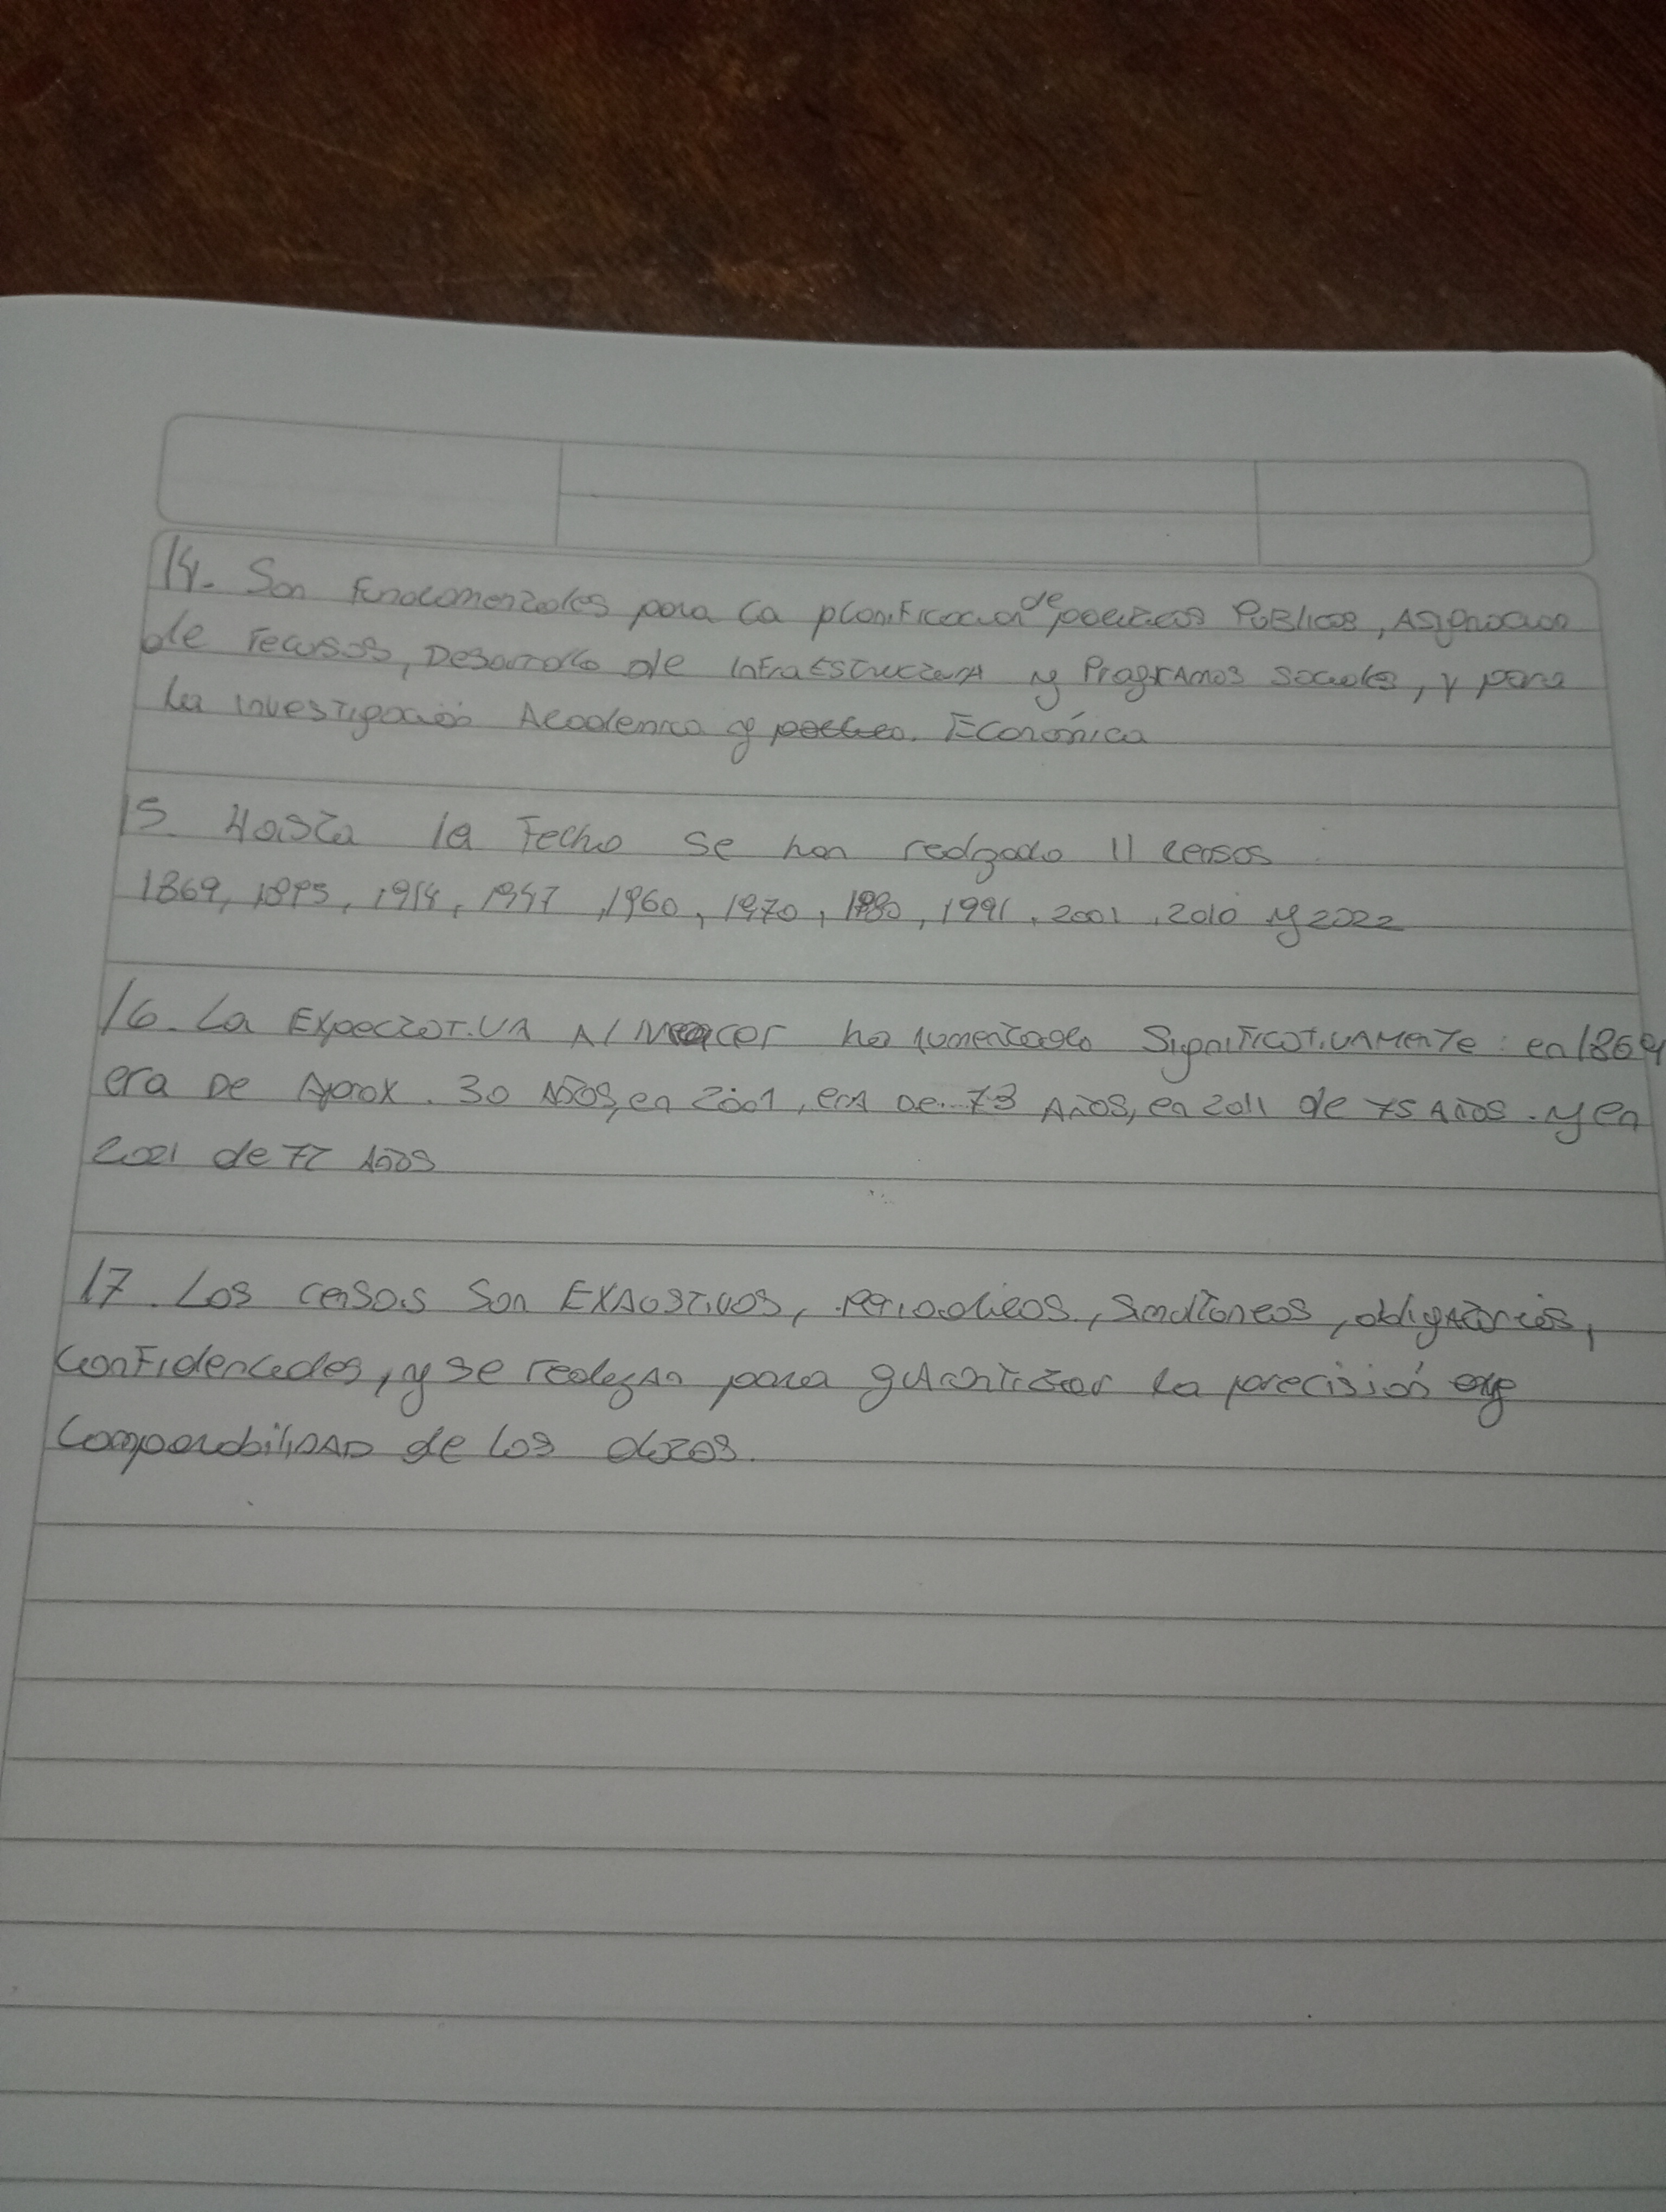 14. Son Fundamentales para la planificación de políticas Públicas, Asignacion
de recursos, Desarrollo de InfraEstructura y Programas sociales, y para
la investigación Academica y Económica
15. Hasta la Fecha se han realizado 11 censos
1869, 1895, 1914, 1947, 1960, 1970, 1980, 1991, 2001, 2010 y 2022
16. La Expectativa Al Nacer ha aumentado Significativamente: en 1869
era De Aprox. 30 Años, en 2001, era De 73 Años, en 2011 de 75 Años. y en
2021 de 77 Años
17. Los censos Son EXAUSTIVOS, Periodicos, Simultoneos, obligatorios,
Confidenciales, y se realizan para guarantizar la precisión y
Comparabilidad de los datos.